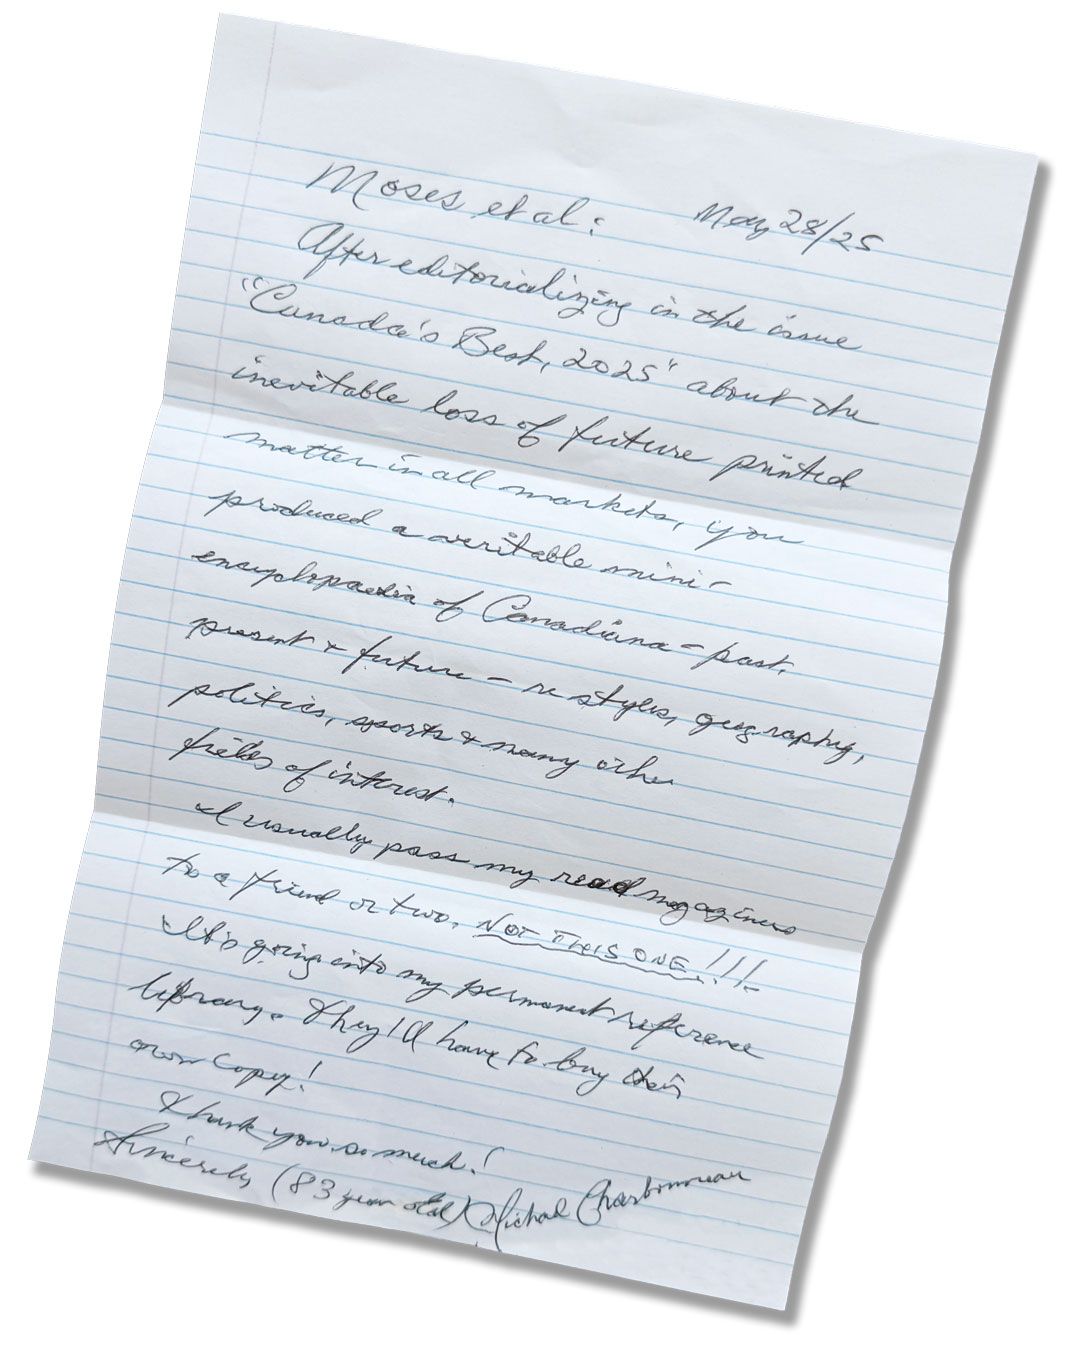 Moses et al: May 28/25
After editorializing in the issue
"Canada's Best, 2025" about the
inevitable loss of future printed
matter in all markets, you
produced a veritable mini-
encyclopaedia of Canadiana - past,
present & future - re styles, geography,
politics, sports & many other
fields of interest.
I usually pass my read magazines
to a friend or two. NOT THIS ONE!!!
It's going into my permanent reference
library. They'll have to buy their
own copy!
Thank you so much!
Sincerely, (83 year old) Michael Charbonneau